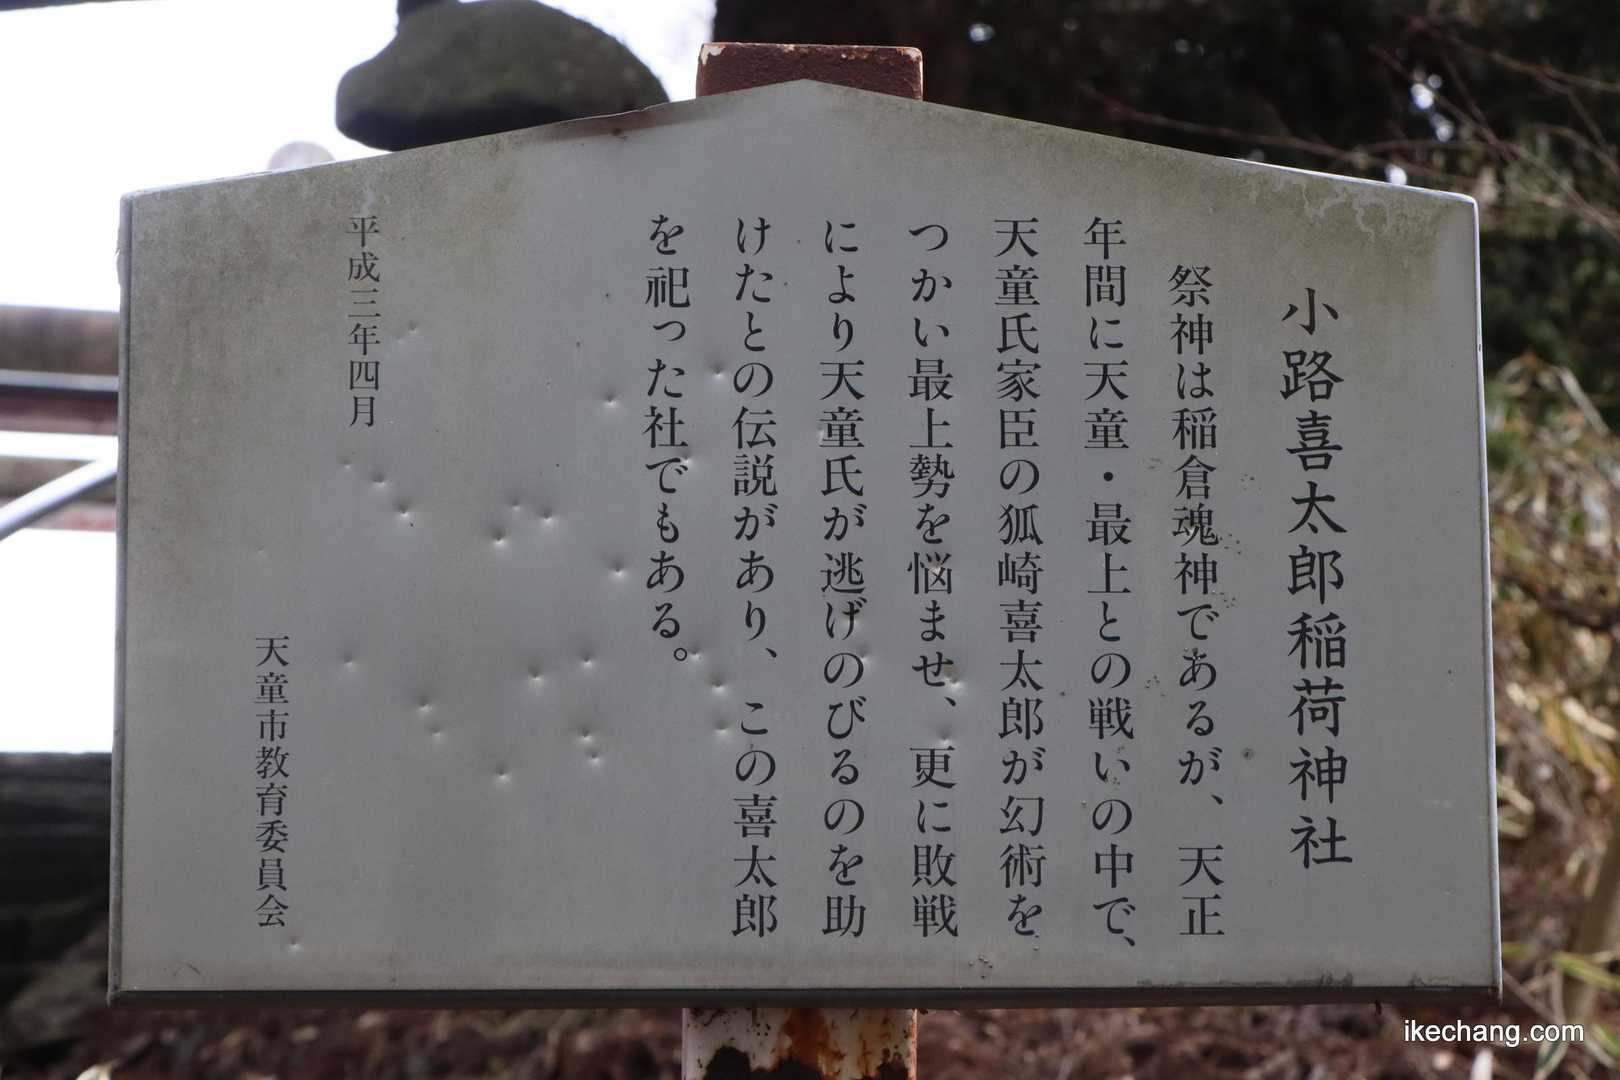 小路喜太郎稲荷神社
祭神は稲倉魂神であるが、天正
年間に天童・最上との戦いの中で、
天童氏家臣の狐崎喜太郎が幻術を
つかい最上勢を悩ませ、更に敗戦
により天童氏が逃げのびるのを助
けたとの伝説があり、この喜太郎
を祀った社でもある。
平成三年四月
天童市教育委員会
ikechang.com